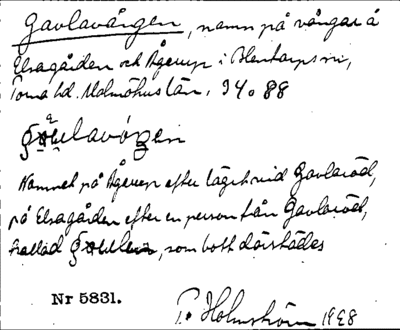 Gavlavången, namn på vångar å
Elsagården och Ågerup i Blentarps sn,
Torna hd. Malmöhus län. 34088
Namnet på Ågerup efter läget vid Gavlaröd,
på Elsagården efter en person från Gavlaröd,
kallad, som bott därstädes
Nr 5831.
P. Holmström 1938